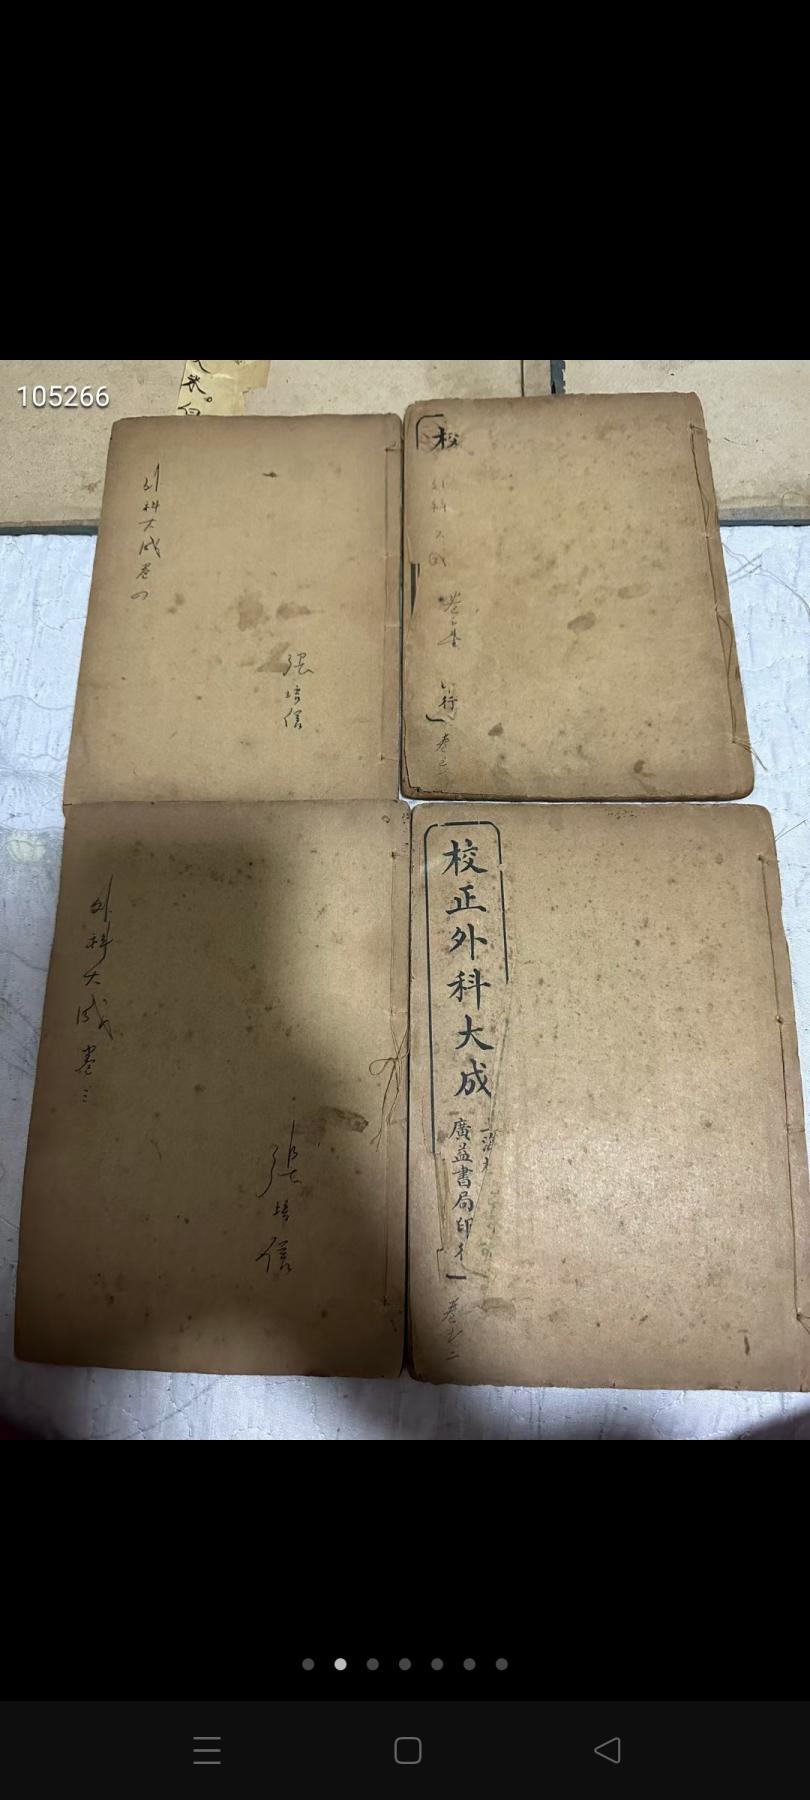 105266
外科大成卷四
張培信
校
外科大成
卷
印行
卷
外科大成卷三
張培信
校正外科大成
上海
廣益書局印行
卷